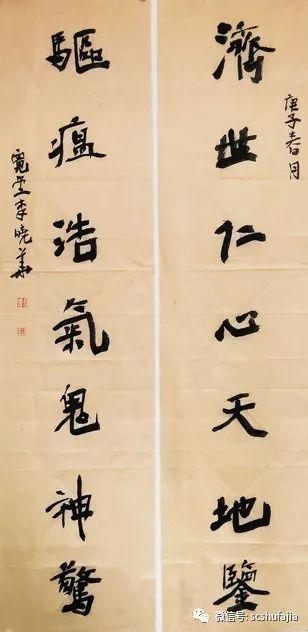 庚子春月
濟世仁心天地鑒
驅瘟浩氣鬼神驚
寬堂李曉華
微信号: scshufajia